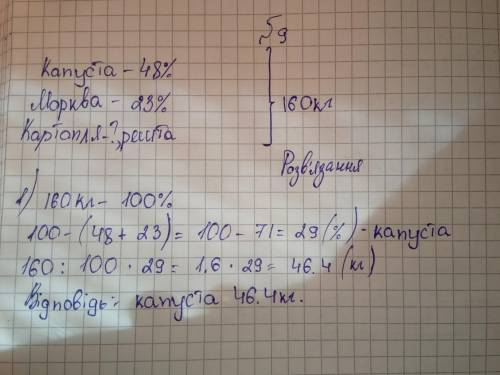 Капуста - 48%
Морква - 23%
Картопля - ?, решта
160кг
Розв'язання
1) 160 кг - 100%
100 - (48 + 23) = 100 - 71 = 29 (%) - капуста
160 : 100 · 29 = 1.6 · 29 = 46.4 (кг)
Відповідь: капуста 46.4кг.